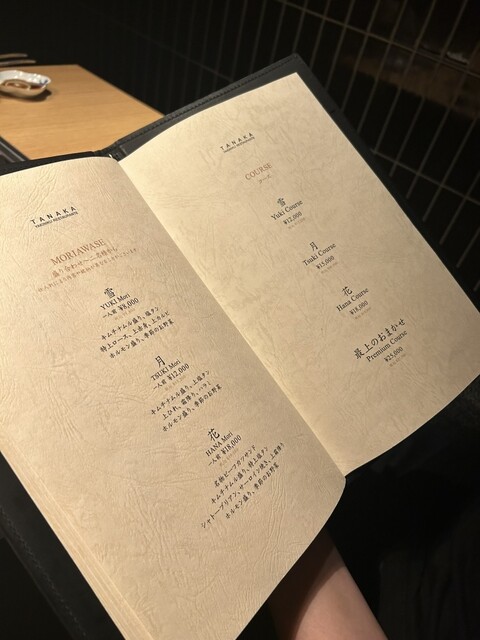 TANAKA
MORIAWASE
盛り合わせ〜二名様から
雪
YUKI Mori
一人前 ¥8,000
キムチナムル盛り、塩タン
特上ロース、上赤身、上カルビ
ホルモン盛り、季節のお野菜
月
TSUKI Mori
一人前 ¥12,000
キムチナムル盛り、上塩タン
上ひれ、霜降り、ハラミ
ホルモン盛り、季節のお野菜
花
HANA Mori
一人前 ¥18,000
名物ビーフカツサンド
キムチナムル盛り、特上塩タン
シャトーブリアン、サーロイン焼き、上霜降り
ホルモン盛り、季節のお野菜
TANAKA
COURSE
コース
雪
Yuki Course
¥12,000
月
Tsuki Course
¥15,000
花
Hana Course
¥18,000
最上のおまかせ
Premium Course
¥25,000